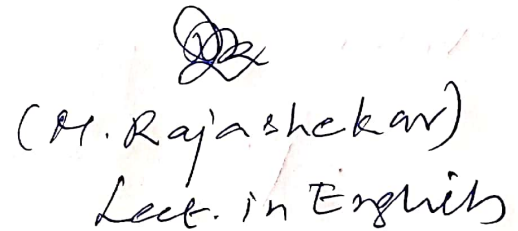 (M. Rajashekar)
Lect. in English